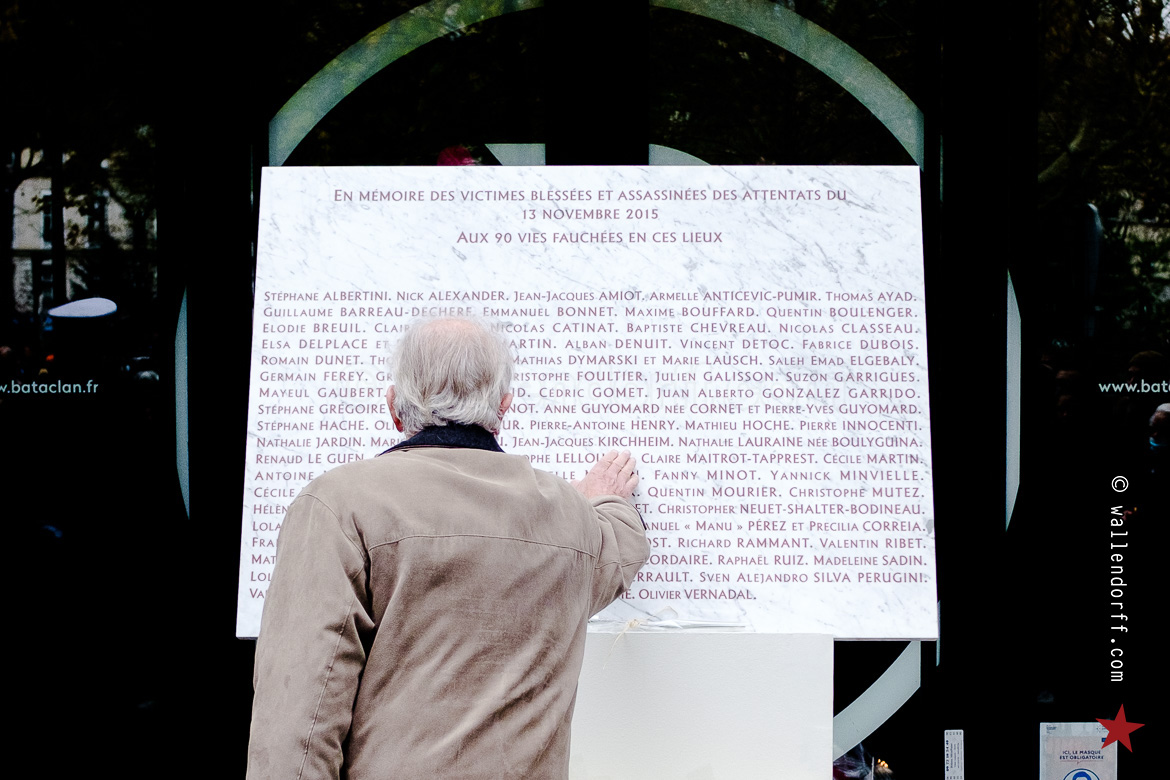 En mémoire des victimes blessées et assassinées des attentats du
13 novembre 2015
Aux 90 vies fauchées en ces lieux
Stéphane ALBERTINI. Nick ALEXANDER. Jean-Jacques AMIOT. Armelle ANTICEVIC-PUMIR. Thomas AYAD.
Guillaume BARREAU-DECHERF. Emmanuel BONNET. Maxime BOUFFARD. Quentin BOULENGER.
Elodie BREUIL. Nicolas CATINAT. Baptiste CHEVREAU. Nicolas CLASSEAU.
Elsa DELPLACE et MARTIN. Alban DENUIT. Vincent DETOC. Fabrice DUBOIS.
Romain DUNET. Mathias DYMARSKI et Marie LAÜSCH. Saleh Emad ELGEBALY.
Germain FEREY. FOULTIER. Julien GALISSON. Suzon GARRIGUES.
Mayeul GAUBERT. Cédric GOMET. Juan Alberto GONZALEZ GARRIDO.
Stéphane GRÉGOIRE Anne GUYOMARD née CORNET et Pierre-Yves GUYOMARD.
Stéphane HACHE. Pierre-Antoine HENRY. Mathieu HOCHE. Pierre INNOCENTI.
Nathalie JARDIN. Jean-Jacques KIRCHHEIM. Nathalie LAURAINE née BOULYGUINA.
Renaud LE GUEN. Claire MAITROT-TAPPREST. Cécile MARTIN.
Antoine Fanny MINOT. Yannick MINVIELLE.
Cécile Quentin MOURIER. Christophe MUTEZ.
Christopher NEUET-SHALTER-BODINEAU.
« Manu » PÉREZ et Precilia CORREIA.
Richard RAMMANT. Valentin RIBET.
Raphaël RUIZ. Madeleine SADIN.
Sven Alejandro SILVA PERUGINI.
Olivier VERNADAL.
www.bataclan.fr
© wallendorff.com
ICI, LE MASQUE
EST OBLIGATOIRE